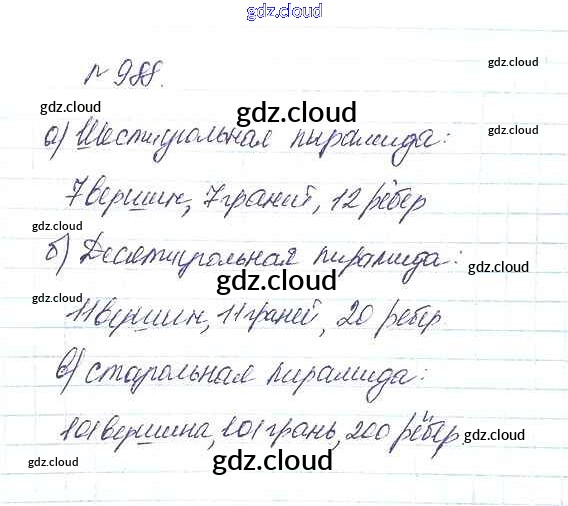 gdz.cloud
gdz.cloud
№ 988.
gdz.cloud
gdz.cloud
gdz.cloud
а) Шестиугольная пирамида:
7 вершин, 7 граней, 12 рёбер
gdz.cloud
б) Десятиугольная пирамида:
gdz.cloud
gdz.cloud
gdz.cloud
11 вершин, 11 граней, 20 ребер.
в) стоугольная пирамида:
gdz.cloud
gdz.cloud
101 вершина, 101 грань, 200 рёбер.
gdz.cloud
gdz.cloud
gdz.cloud